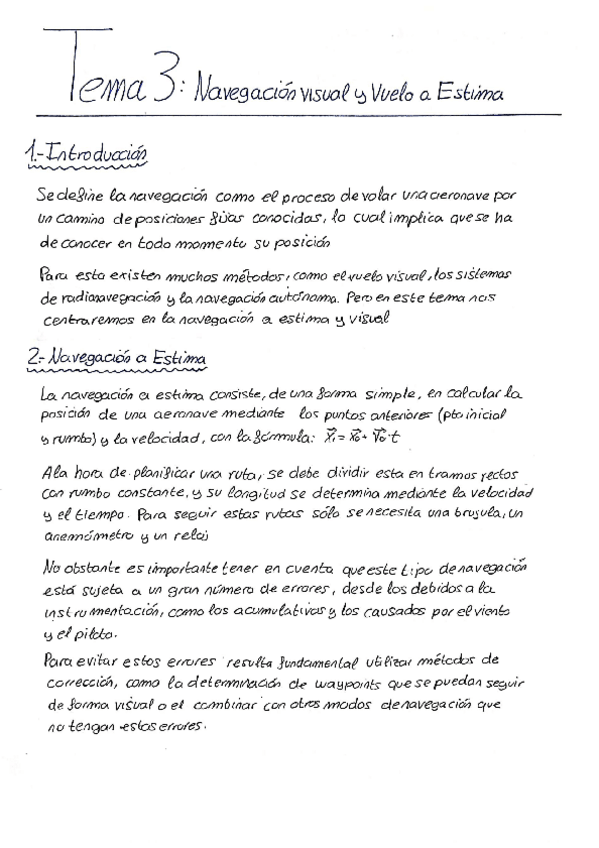 Tema 3: Navegación visual y Vuelo a Estima
1.- Introducción
Se define la navegación como el proceso de volar una aeronave por
un camino de posiciones fijas conocidas, lo cual implica que se ha
de conocer en todo momento su posición
Para esto existen muchos métodos, como el vuelo visual, los sistemas
de radionavegación y la navegación autónoma. Pero en este tema nos
centraremos en la navegación a estima y visual
2.- Navegación a Estima
La navegación a estima consiste, de una forma simple, en calcular la
posición de una aeronave mediante los puntos anteriores (pto inicial
y rumbo) y la velocidad, con la fórmula: x⃗₁ = x⃗₀ + v⃗₀·t
A la hora de planificar una ruta, se debe dividir esta en tramos rectos
con rumbo constante, y su longitud se determina mediante la velocidad
y el tiempo. Para seguir estas rutas sólo se necesita una brujula, un
anemómetro y un reloj
No obstante es importante tener en cuenta que este tipo de navegación
está sujeta a un gran número de errores, desde los debidos a la
instrumentación, como los acumulativos y los causados por el viento
y el piloto.
Para evitar estos errores resulta fundamental utilizar métodos de
corrección, como la determinación de waypoints que se puedan seguir
de forma visual o el combinar con otros modos de navegación que
no tengan estos errores.